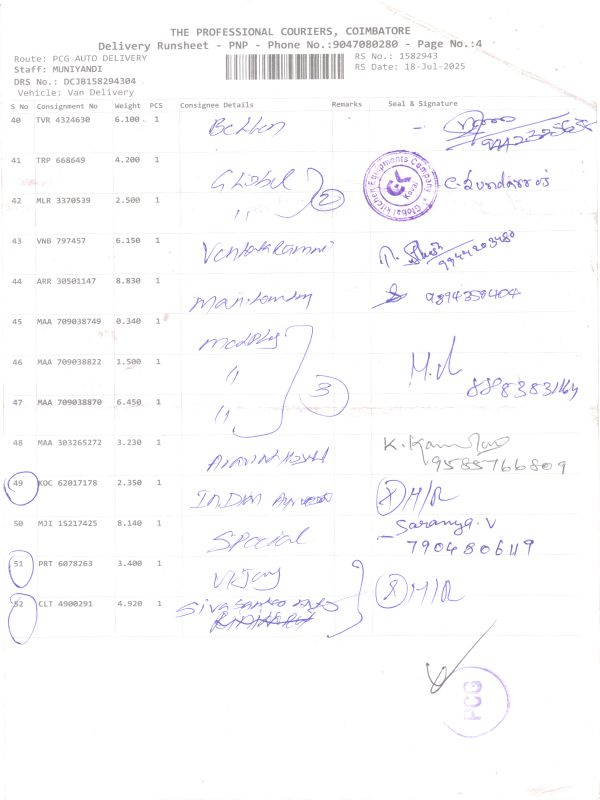 THE PROFESSIONAL COURIERS, COIMBATORE
Delivery Runsheet - PNP - Phone No.:9047080280 - Page No.:4
Route: PCG AUTO DELIVERY
Staff: MUNIYANDI
DRS No.: DCJB158294304
Vehicle: Van Delivery
RS No.: 1582943
RS Date: 18-Jul-2025
S No Consignment No Weight PCS Consignee Details Remarks Seal & Signature
40 TVR 4324630 6.100 1
41 TRP 668649 4.200 1 Global
Global Kitchen Equipments Company
42 MLR 3370539 2.500 1 " 2
43 VNB 797457 6.150 1 9944203480
44 ARR 30501147 8.830 1 9894350404
45 MAA 709038749 0.340 1
46 MAA 709038822 1.500 1 "
47 MAA 709038870 6.450 1 " 3 8883831164
48 MAA 303265272 3.230 1 9585766809
49 KOC 62017178 2.350 1 Indian H/R
50 MJI 15217425 8.140 1 Special Saranya. V
7904806119
51 PRT 6078263 3.400 1 Vijay
52 CLT 4900291 4.920 1 H/R
PCG